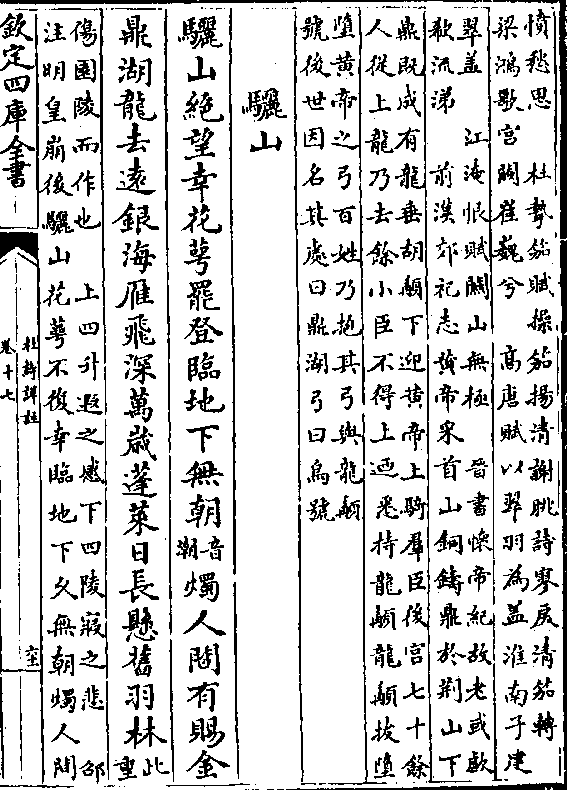 憤愁思　杜摯笳賦操笳揚清謝朓詩寥戾清笳轉
梁鴻歌宮闕崔巍兮　高唐賦以翠羽為蓋淮南子建
翠蓋　江淹恨賦關山無極　晉書懷帝紀故老或歔
欷流涕　前漢郊祀志黃帝采首山銅鑄鼎於荆山下
鼎既成有龍垂胡髯下迎黃帝上騎羣臣後宮七十餘
人從上龍乃去餘小臣不得上迺悉持龍髯龍髯拔墮
墮黃帝之弓百姓乃抱其弓與龍髯
號後世因名其處曰鼎湖弓曰烏號
驪山
驪山絶望幸花萼罷登臨地下無朝音潮燭人間有賜金
鼎湖龍去遠銀海雁飛深萬歲蓬萊日長懸舊羽林此重
傷園陵而作也　上四升遐之感下四陵寢之悲　邵
注明皇崩後驪山花萼不復幸臨地下久無朝燭人間
欽定四庫全書
杜詩詳註
卷十七